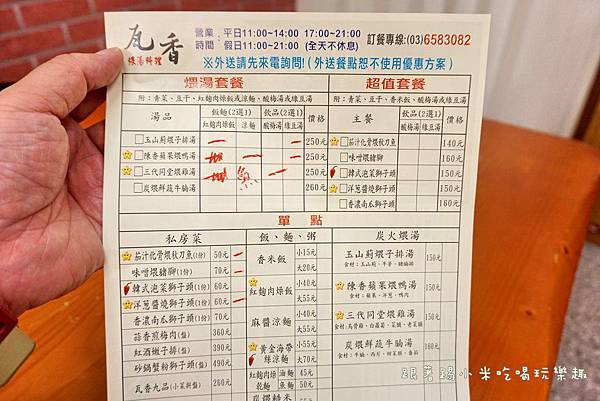 瓦香
煨湯料理
營業:平日11:00~14:00 17:00~21:00
時間:假日11:00~21:00 (全天不休息)
訂餐專線:(03)6583082
※外送請先來電詢問!(外送餐點恕不使用優惠方案)
煨湯套餐
附:青菜、豆干、紅麴肉燥飯或涼麵、酸梅湯或綠豆湯
湯品
飯麵(2選1)
飲品(2選1)
價格
紅麴肉燥飯 涼麵 酸梅湯 綠豆湯
玉山薊煨子排湯 250元
陳香蘋果煨鴨湯 250元
三代同堂煨雞湯 250元
炭煨鮮蔬牛腩湯 260元
超值套餐
附:青菜、豆干、香米飯、酸梅湯或綠豆湯
主餐
飲品(2選1)
價格
酸梅湯 綠豆湯
茄汁化骨煨秋刀魚 140元
味噌煨豬腳 160元
韓式泡菜獅子頭 150元
洋蔥醬燒獅子頭 150元
香濃南瓜獅子頭 160元
單點
私房菜
茄汁化骨煨秋刀魚(1份) 50元
味噌煨豬腳(1份) 70元
韓式泡菜獅子頭(1份) 60元
洋蔥醬燒獅子頭(1份) 60元
香濃南瓜獅子頭(1份) 70元
蒜香煎梅肉(盤) 360元
紅酒嫩子排(盤) 390元
砂鍋蟹粉獅子頭(盤) 490元
瓦香九品(小菜拼盤) 260元
飯、麵、粥
香米飯 小15元
大20元
紅麴肉燥飯 小35元
大55元
麻醬涼麵 小35元
大55元
黃金海帶絲涼麵 小55元
大70元
紅麴肉燥乾麵 油麵 45元
魚麵 50元
炭火煨湯
玉山薊煨子排湯 150元
食材:玉山薊、牛蒡、豬腩排
陳香蘋果煨鴨湯 150元
食材:蘋果、洋蔥、鴨肉
三代同堂煨雞湯 150元
食材:烏骨雞、白蘿蔔、菜脯、老菜脯
炭煨鮮蔬牛腩湯 150元
跟著踢小米吃喝玩樂趣